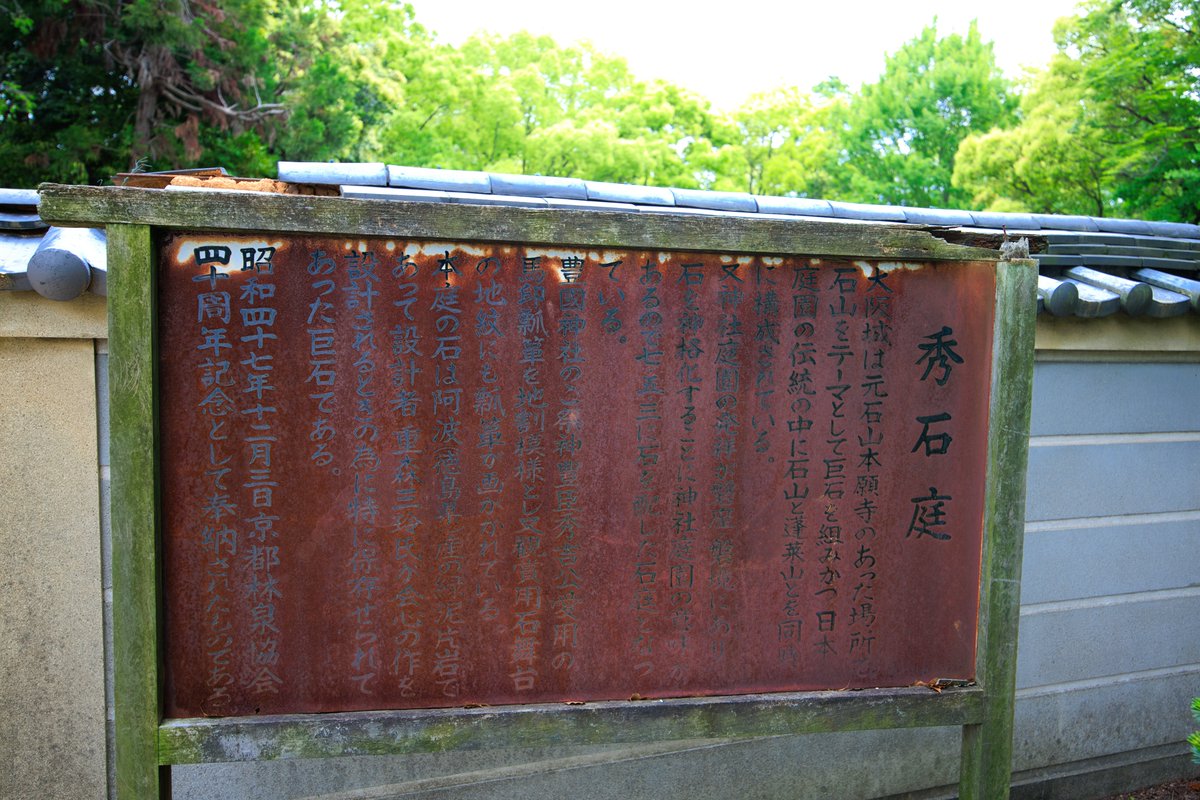 秀石庭
大阪城は元石山本願寺のあった場所を
石山をテーマとして巨石を組みかつ日本
庭園の伝統の中に石山と蓬莱山とを同時
に構成されている。
又神社庭園の発祥が磐座 磐境にあり
石を神格化することに神社庭園の
あるので七五三に石を配した石庭となっ
ている。
豊國神社のご祭神豊臣秀吉公愛用の
馬印瓢箪を地割模様とし又観賞用石舞台
の地紋にも瓢箪が画かれている
本庭の石は阿波徳島県産の緑泥片岩で
あって設計者重森三玲氏が会心の作を
設計されるときの為に特に保存せられて
あった巨石である。
昭和四十七年十二月三日京都林泉協会
四十周年記念として奉納されたものである